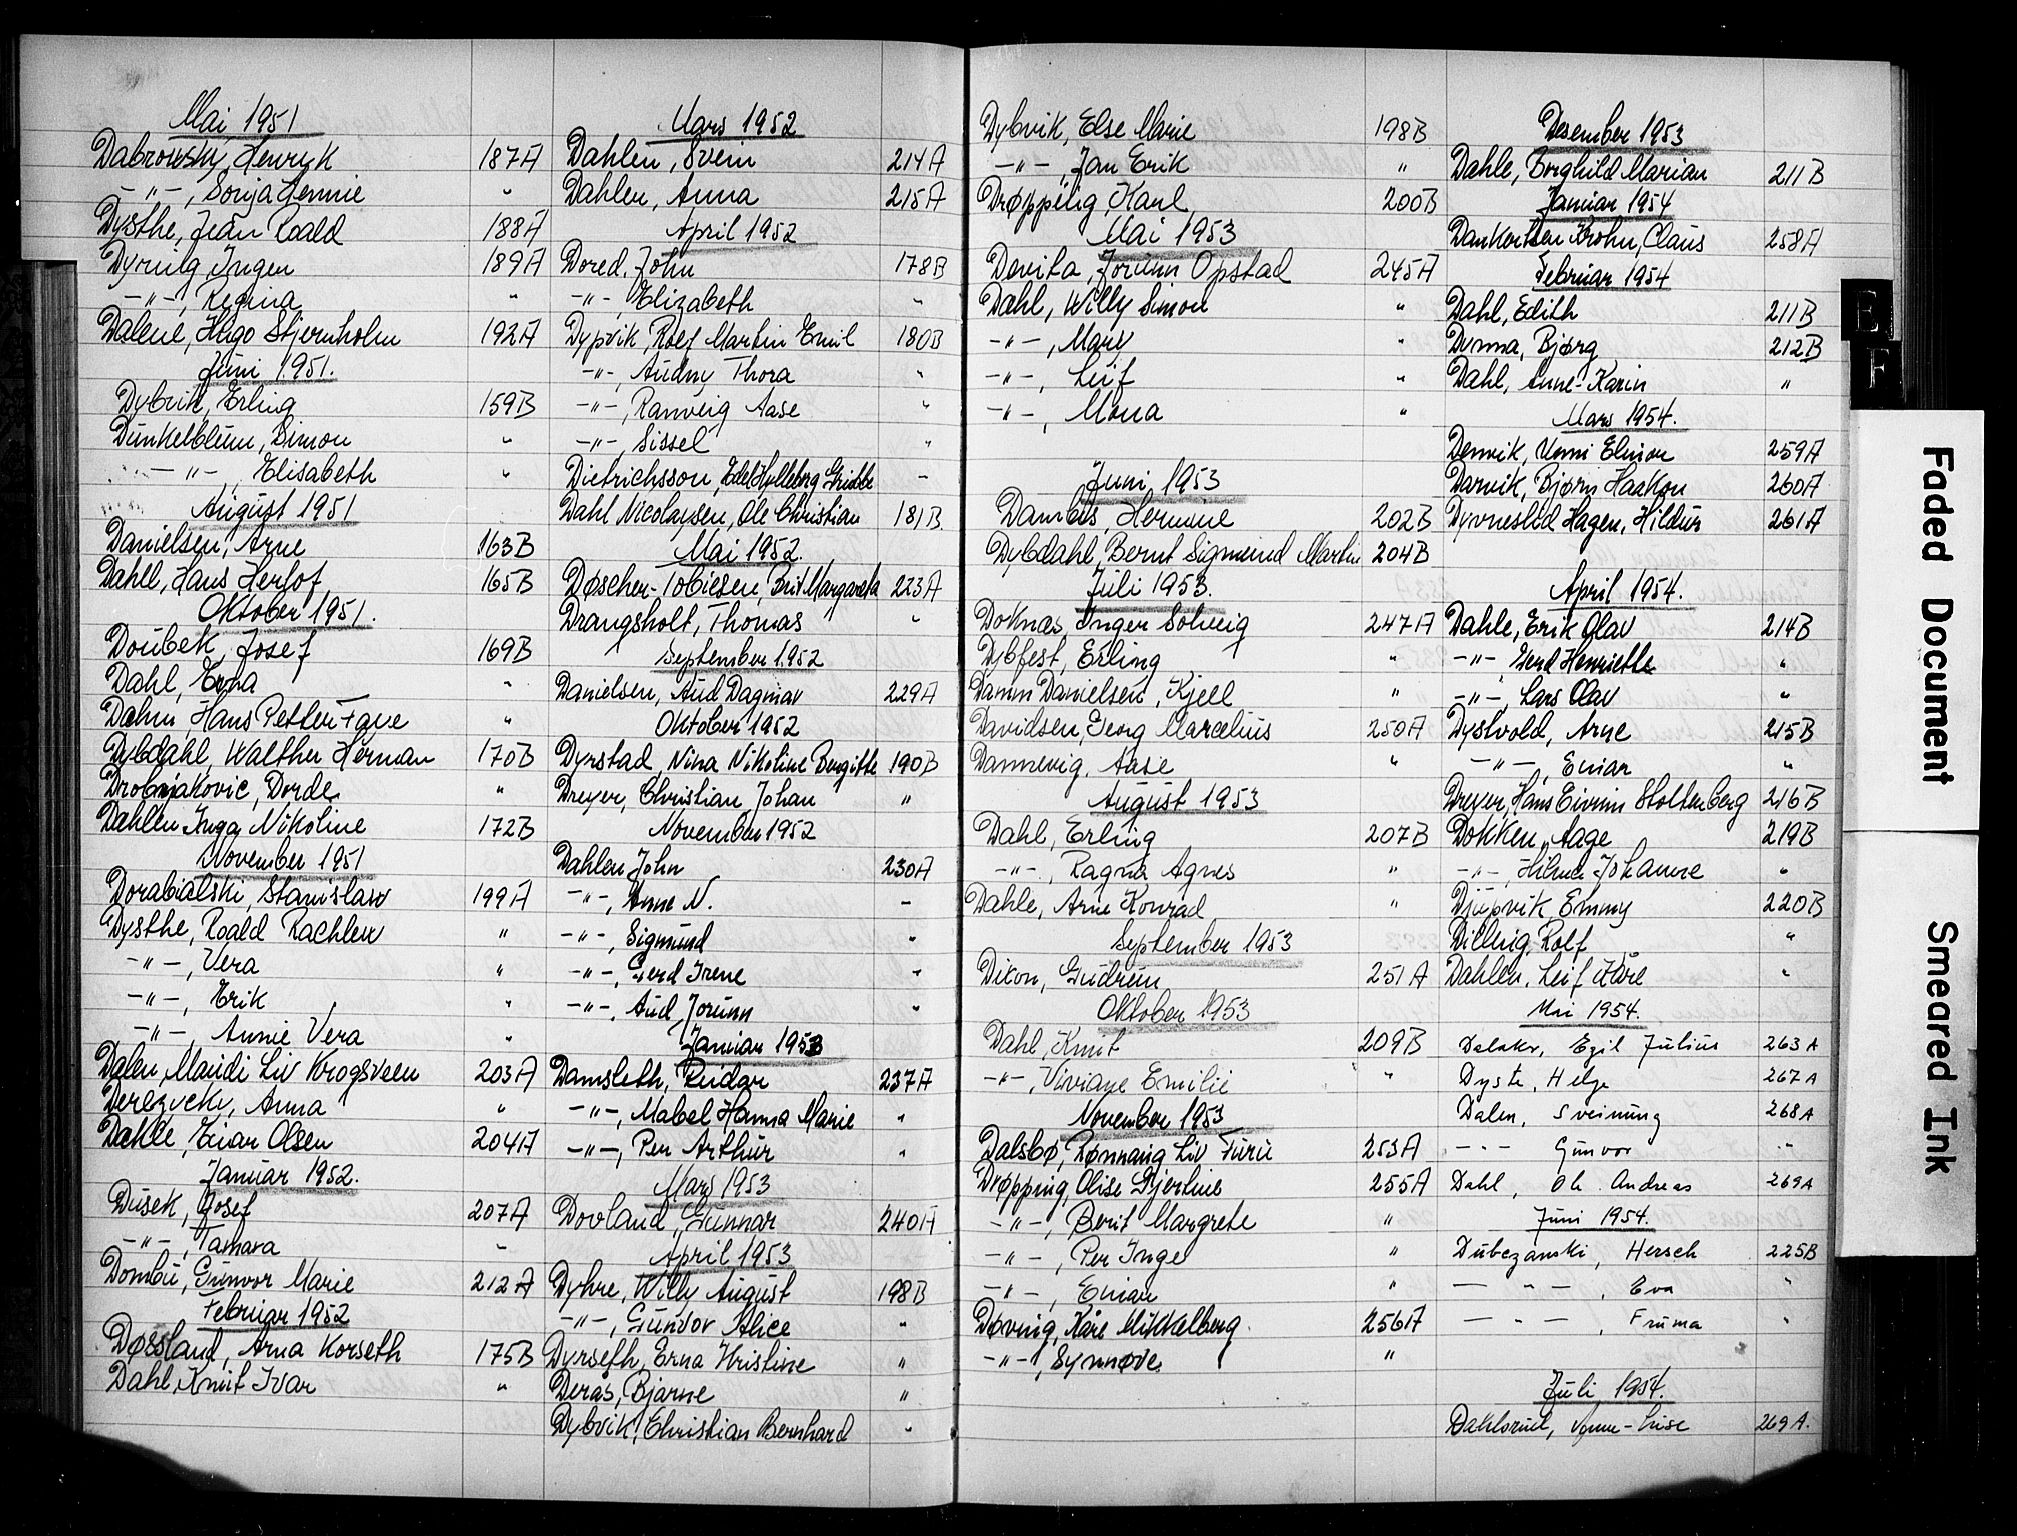 Mai 1951
Dabrowsky, Henryk 187A
-"-, Sonja Hennie "
Dysthe, Jean Roald 188A
Dyring, Inger 189A
-"-, Regina "
Dalene, Hugo Stjernholm 192A
Juni 1951.
Dybvik, Erling 159B
Dunkelblum, Simon "
-"-, Elisabeth "
August 1951
Danielsen, Arne 163B
Dahll, Hans Herlof 165B
Oktober 1951.
Doubek, Josef 169B
Dahl, Erna "
Dahm, Hans Petter "
Dybdahl, Walther Herman 170B
Drobnjakovic, Dorde "
Dahlen, Inga Nikoline 172B
November 1951
Dorabialski, Stanislaw 199A
Dysthe, Roald Rachlew "
-"-, Vera "
-"-, Erik "
-"-, Annie Vera "
Dalen, Maudi Liv Krogsveen 203A
Anna "
Dahle, Einar Olsen 204A
Januar 1952.
Dusek, Josef 207A
-"-, Tamara "
Dombu, Gunvor Marie 212A
Februar 1952
Døssland, Arna Korseth 175B
Dahl, Knut Ivar "
Mars 1952
Dahlen, Svein 214A
Dahlen, Anna 215A
April 1952
Dored, John 178B
-"- Elizabeth "
Dypvik, Rolf Martin Emil 180B
-"-, Audny Thora "
-"-, Ranveig Aase "
-"-, Sissel "
Dietrichsson, Edel "
Dahl Nicolaysen, Ole Christian 181B
Mai 1952.
Døscher-Tobiesen, Brit Margareta 223A
Drangsholt, Thomas "
September 1952
Danielsen, Aud Dagmar 229A
Oktober 1952
Dyrstad, Nina Nikoline Bergitte 190B
Dreyer, Christian Johan "
November 1952
Dahlen, John 230A
-"-, Anne N. "
-"-, Sigmund "
-"-, Gerd Irene "
-"-, Aud Jorunn "
Januar 1953
Damsleth, Reidar 237A
-"-, Mabel Hanna Marie "
-"-, Per Arthur "
Mars 1953
Dovland, Gunnar 240A
April 1953
Dyhre, Willy August 198B
-"-, Gunvor Alice "
Dyrseth, Erna Kristine "
Deräs, Bjarne "
Dybvik, Christian Bernhard "
Dybvik, Else Marie 198B
-"-, Jan Erik "
Drøpping, Karl 200B
Mai 1953
Devita, Jorunn Opstad 245A
Dahl, Willy Simon "
-"-, Mary "
-"-, Leif "
-"-, Mona "
Juni 1953
Hermine 202B
Dybdahl, Bernt Sigmund Martin 204B
Juli 1953.
Doknæs, Inger Solveig 247A
Dybfest, Erling "
Damm Danielsen, Kjell "
Davidsen, Georg Marcelius 250A
Dannevig, Aase "
August 1953
Dahl, Erling 207B
-"-, Ragna Agnes "
Dahle, Arne Konrad "
September 1953
Dixon, Gudrun 251A
Oktober 1953
Dahl, Knut 209B
-"-, Viviane Emilie "
November 1953
Dalsbø, Rønnaug Liv Furu 253A
Drøpping, Olise Gjertine 255A
-"-, Berit Margrete "
-"-, Per Inge "
-"-, Einar "
Døving, Kåre Mikkelberg. 256A
-"-, Synnøve "
Desember 1953
Dahle, Borghild Marian 211B
Januar 1954
Dankertsen Krohn, Claus 258A
Februar 1954
Dahl, Edith 211B
Dynna, Bjørg 212B
Dahl, Anne-Karin "
Mars 1954.
Denvik, Unni Elinor 259A
Darvik, Bjørn Haakon 260A
Hagen, Hildur 261A
April 1954.
Dahle, Erik Olav 214B
-"- Gerd Henriette "
-"- Lars Olav "
Dystvold, Arne 215B
-"-, Einar "
Dreyer, Hans Eivinn Stoltenberg 216B
Dokken, Aage 219B
-"-, Johanne "
Djupvik, Emmy 220B
Dilling, Rolf "
Dahlen, Leif Kåre "
Mai 1954.
Egil Julius 263A
Dyste, Helge 267A
Dalen, Sveinung 268A
--- Gunvor -"-
Dahl, Ole Andreas 269A
Juni 1954.
Dubczanski, Hersch 225B
-"-, Eva "
-"-, Fruma "
Juli 1954.
Dahlsrud, Anne-Lise 269A.
E
F
Faded Document
Smeared Ink